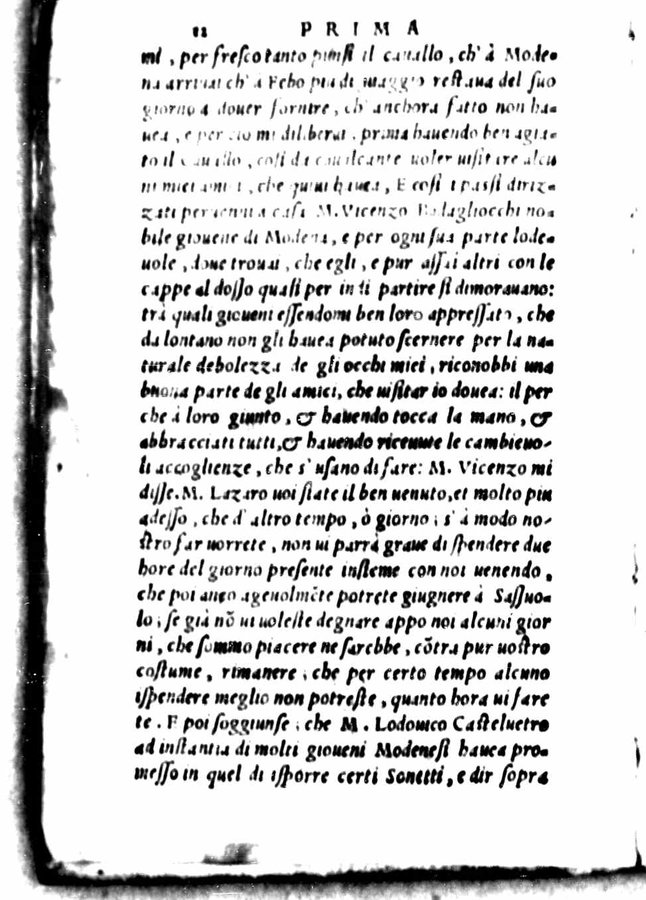 12 PRIMA
mi, per fresco tanto punsi il cauallo, ch' à Mode-
na arriuai ch' à Febo piu di maggio restaua del suo
giorno a douer fornire, ch' anchora fatto non ha-
uea, e per cio mi diliberai, prima hauendo ben agia-
to il cauallo, cosi da caualcante uoler uisitare alcu
ni miei amici, che quiui hauea, E cosi i passi diriz-
zati peruenni a casa M. Vicenzo Fadagliocchi no-
bile giouene di Modena, e per ogni sua parte lode-
uole, doue trouai, che egli, e pur assai altri con le
cappe al dosso quasi per indi partire si dimorauano:
trà quali gioueni essendomi ben loro appressato, che
da lontano non gli hauea potuto scernere per la na-
turale debolezza de gli occhi miei, riconobbi una
buona parte de gli amici, che uisitar io douea: il per
che à loro giunto, & hauendo tocca la mano, &
abbracciati tutti, & hauendo riceuute le cambieuo-
li accoglienze, che s' usano di fare: M. Vicenzo mi
disse. M. Lazaro uoi siate il ben uenuto, et molto piu
adesso, che d' altro tempo, ò giorno; s' à modo no-
stro far uorrete, non ui parrà graue di spendere due
hore del giorno presente insieme con noi uenendo,
che poi anco ageuolmẽte potrete giugnere à Sassuo-
lo; se già nõ ui uoleste degnare appo noi alcuni gior
ni, che sommo piacere ne sarebbe, cõtra pur uostro
costume, rimanere; che per certo tempo alcuno
ispendere meglio non potreste, quanto hora ui fare
te. E poi soggiunse; che M. Lodouico Casteluetro
ad instantia di molti gioueni Modenesi hauea pro-
messo in quel di isporre certi Sonetti, e dir sopra